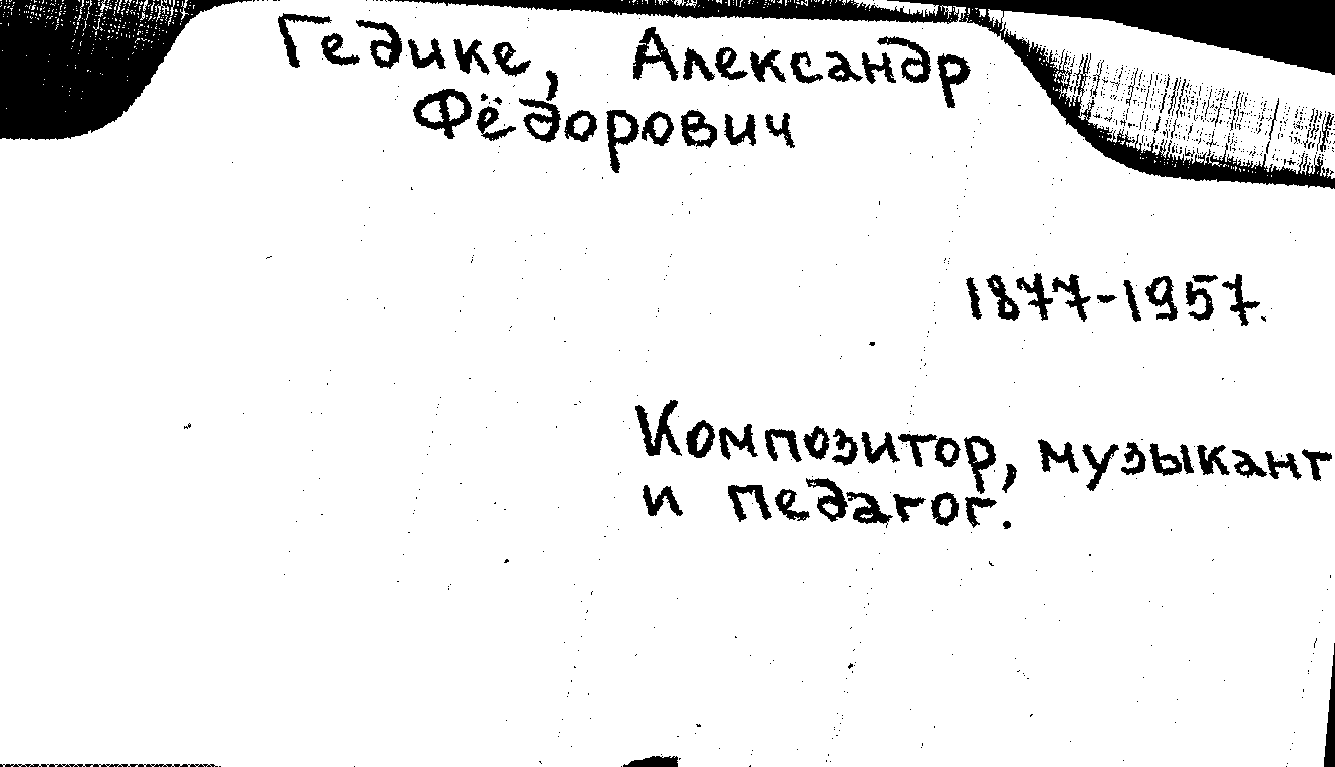 Гедике, Александр
Фёдорович
1877-1957.
Композитор, музыкант
и педагог.